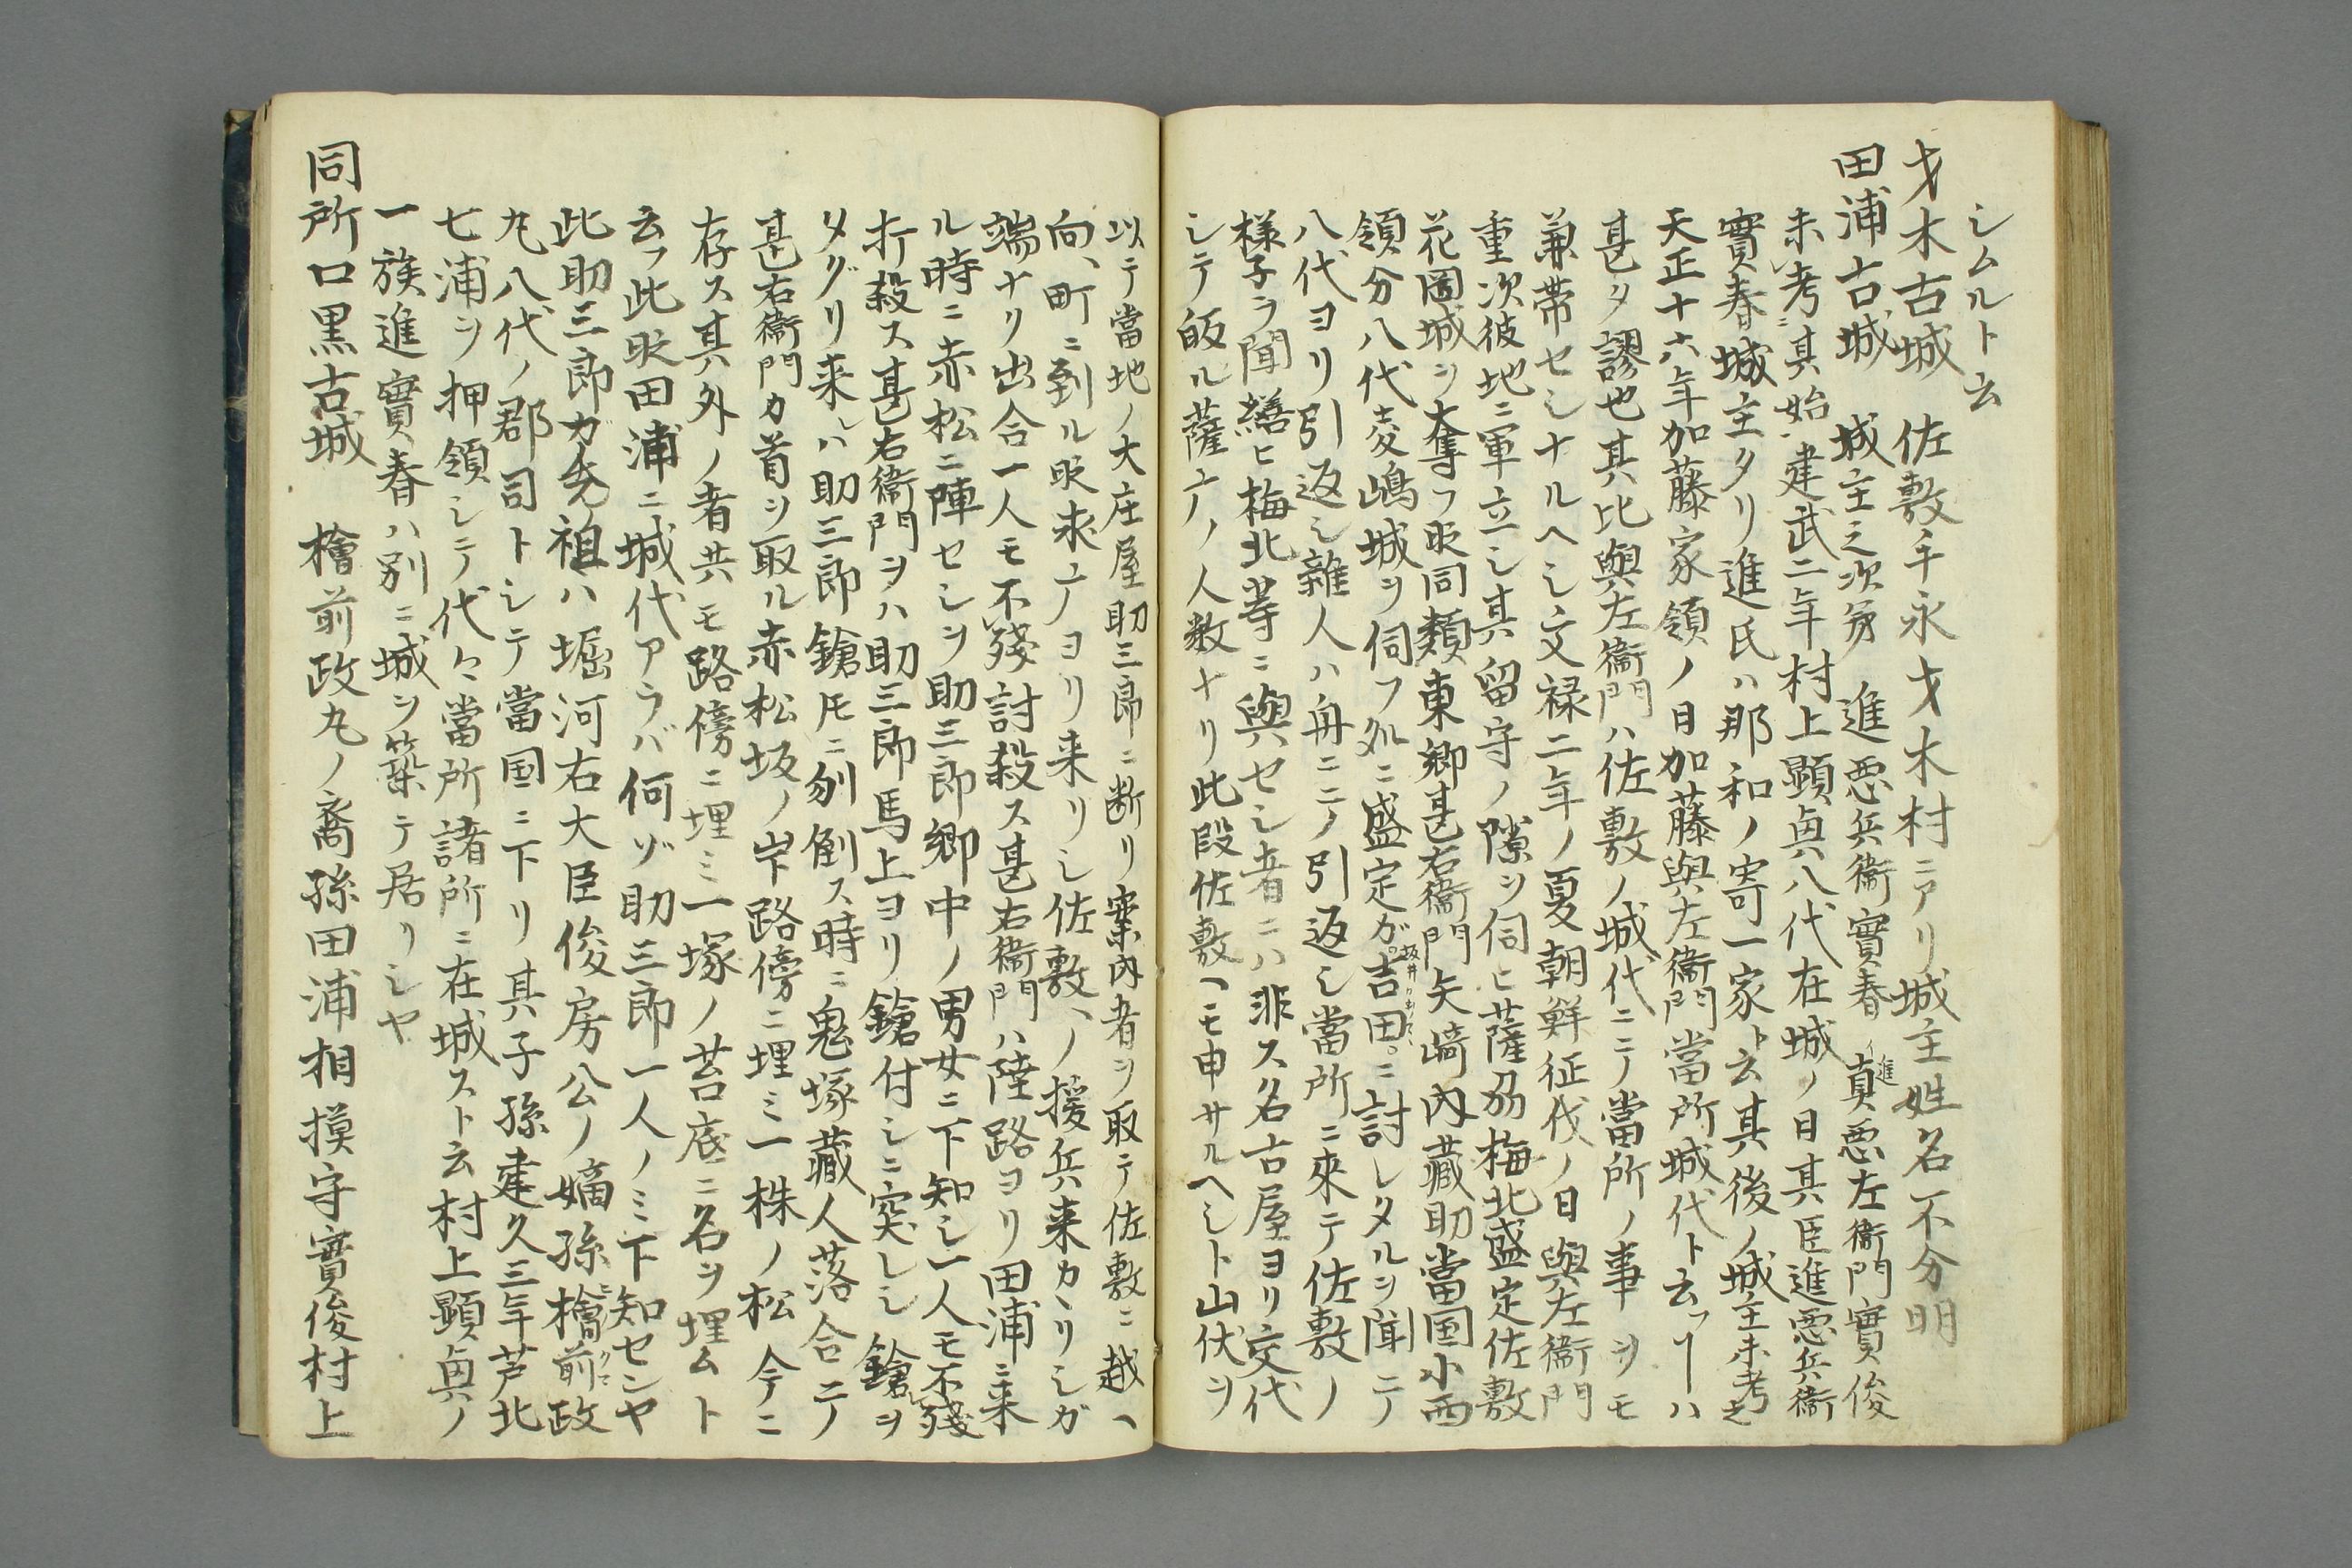 シムルト云
才木古城　佐敷手永才木村ニアリ城主姓名不分明
田浦古城　城主之次第　進悪兵衛實春　イ進真悪左衛門實俊
未考ニ其始建武二年村上顕貞八代在城ノ日其臣進悪兵衛
實春城主タリ進氏ハ那和ノ寄一家ト云其後ノ城主未考之
天正十六年加藤家領ノ日加藤與左衛門當所城代ト云フヿハ
甚タ謬也其比與左衛門ハ佐敷ノ城代ニテ當所ノ事ヲモ
兼帯セシナルヘシ文禄二年ノ夏朝鮮征伐ノ日與左衛門
重次彼地ニ軍立シ其留守ノ隙ヲ伺ヒ薩刕梅北盛定佐敷
花岡城ヲ奪フ此同類東郷甚右衛門矢﨑内藏助當国小西
領分八代麦嶋城ヲ伺フ処ニ盛定ガ吉田ニ討レタルヲ聞ニテ
八代ヨリ引返シ雑人ハ舟ニテ引返シ當所ニ来テ佐敷ノ
様子ヲ聞繕ヒ梅北等ニ與セシ者ニハ非ス名古屋ヨリ交代
シテ皈ル薩广ノ人数ナリ此段佐敷ヘモ申サルヘシト山伏ヲ
以テ當地ノ大庄屋助三郎ニ断リ案内者ヲ取テ佐敷ニ越ヘ
向町ニ到ル此求广ヨリ来リシ佐敷ヘノ援兵来カヽリシガ
端ナリ出合一人モ不残討殺ス甚右衛門ハ陸路ヨリ田浦ニ来
ル時ニ赤松ニ陣セシヲ助三郎郷中ノ男女ニ下知シ一人モ不残
打殺ス甚右衛門ヲハ助三郎馬上ヨリ鎗付シニ突レシ鎗ヲ
タグリ来レハ助三郎鎗厇ニ刎倒ス時ニ鬼塚藏人落合ニテ
甚右衛門カ首ヲ取ル赤松坂ノ峠路傍ニ埋ミ一株ノ松今ニ
存ス其外ノ者共モ路傍ニ埋ミ一塚ノ苔底ニ名ヲ埋ムト
云フ此此田浦ニ城代アラバ何ゾ助三郎一人ノミ下知センヤ
此助三郎カ先祖ハ堀河右大臣俊房公ノ嫡孫檜前政
丸八代ノ郡司トシテ當国ニ下リ其子孫建久三年芦北
七浦ヲ押領シテ代々當所諸所ニ在城スト云村上顕貞ノ
一族進實春ハ別ニ城ヲ築テ居リシヤ
同所口黒古城　檜前政丸ノ裔孫田浦相摸守實俊村上